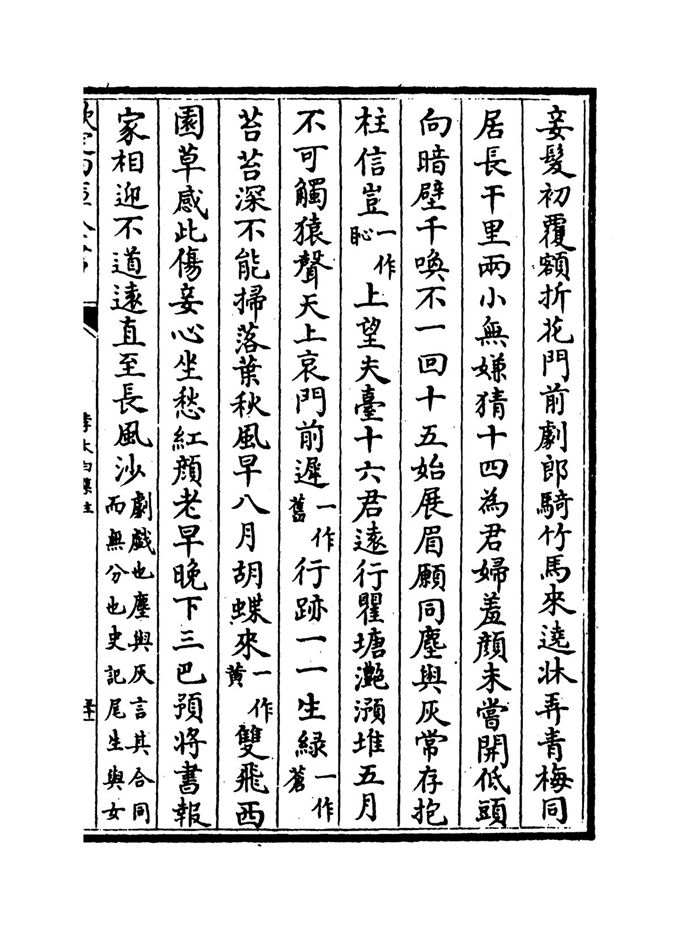 妾髮初覆額折花門前劇郎騎竹馬來遶牀弄青梅同
居長干里兩小無嫌猜十四為君婦羞顏未嘗開低頭
向暗壁千喚不一回十五始展眉願同塵與灰常存抱
柱信豈一作恥上望夫臺十六君遠行瞿塘灔澦堆五月
不可觸猿聲天上哀門前遲一作舊行跡一一生綠一作蒼
苔苔深不能掃落葉秋風早八月胡蝶來一作黃雙飛西
園草感此傷妾心坐愁紅顏老早晚下三巴預將書報
家相迎不道遠直至長風沙劇戲也塵與灰言其合同而無分也史記尾生與女
李太白集注